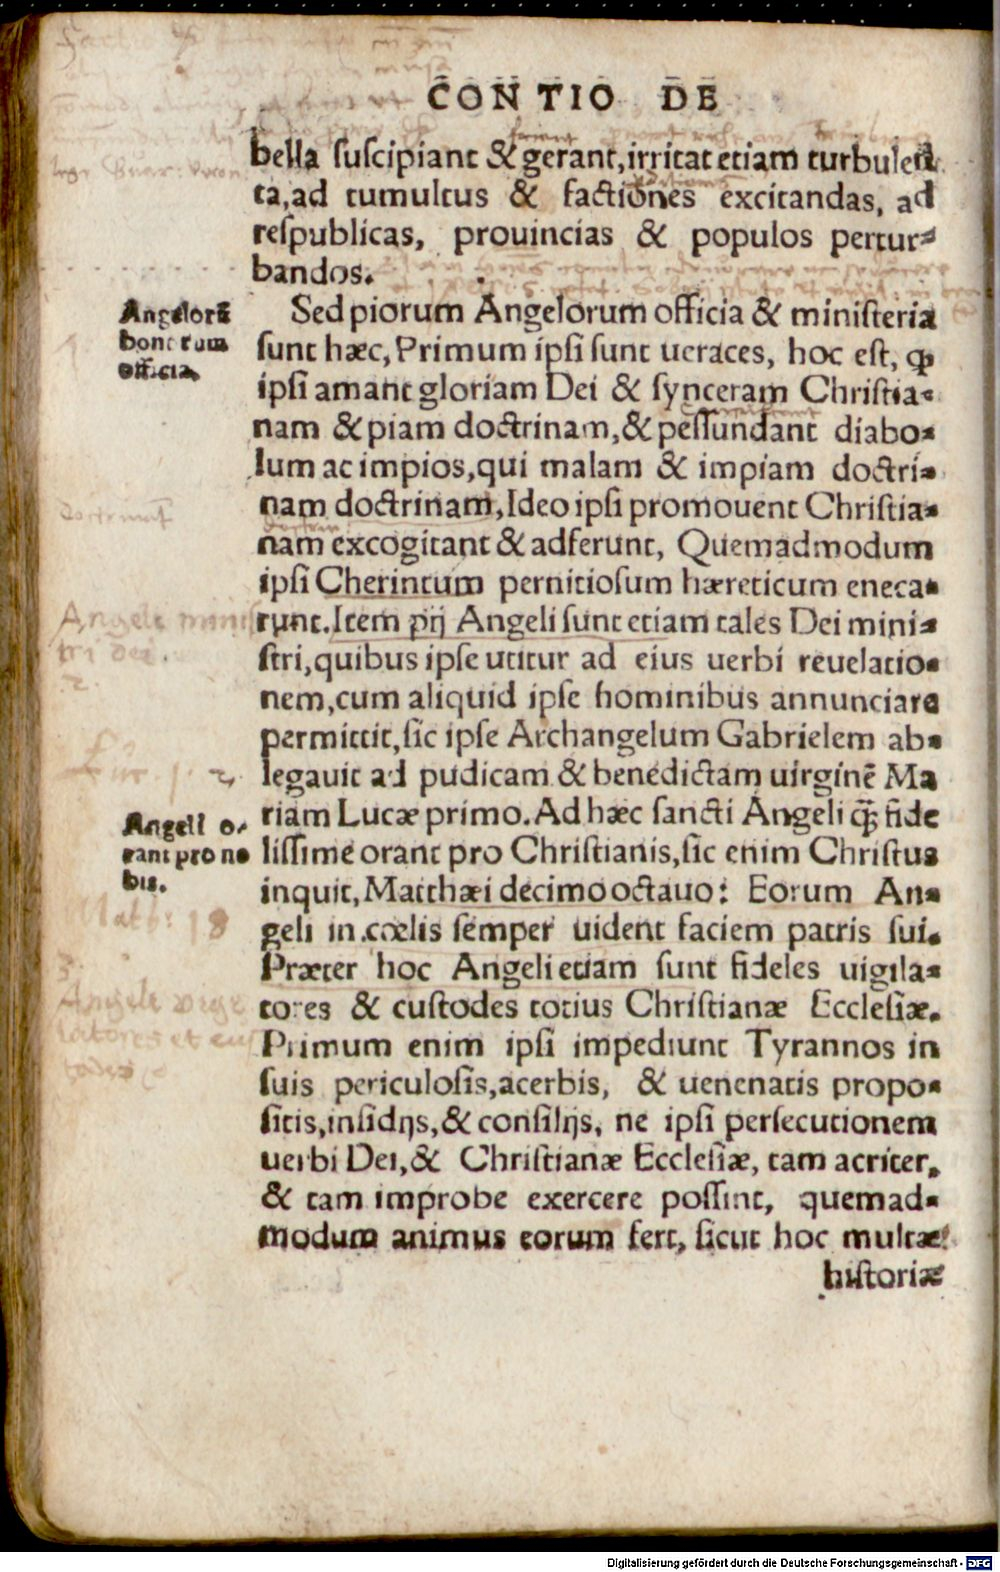 CON TIO DE
bella suscipiant & gerant, irritat etiam turbulen
ta, ad tumultus & factiones excitandas, ad
respublicas, prouincias & populos pertur-
bandos.
Angelorū
bonorum
officia.
Sed piorum Angelorum officia & ministeria
sunt hæc, Primum ipsi sunt ueraces, hoc est, ꝙ
ipsi amant gloriam Dei & synceram Christia-
nam & piam doctrinam, & pessundant diabo-
lum ac impios, qui malam & impiam doctri-
nam doctrinam, Ideo ipsi promouent Christia-
nam excogitant & adferunt, Quemadmodum
ipsi Cherintum pernitiosum hæreticum eneca-
runt. Item pij Angeli sunt etiam tales Dei mini-
Angeli minis
tri dei.
2.
stri, quibus ipse utitur ad eius uerbi reuelatio-
nem, cum aliquid ipse hominibus annunciare
permittit, sic ipse Archangelum Gabrielem ab-
Luc. 1.
legauit ad pudicam & benedictam uirginē Ma
riam Lucæ primo. Ad hæc sancti Angeli q̃ fide
Angeli o-
rant pro no
bis.
lissime orant pro Christianis, sic enim Christus
inquit, Matthæi decimooctauo: Eorum An-
Math: 18
geli in cœlis semper uident faciem patris sui.
Præter hoc Angeli etiam sunt fideles uigila-
3.
Angeli vigi
latores et cus
todes
tores & custodes totius Christianæ Ecclesiæ.
Primum enim ipsi impediunt Tyrannos in
suis periculosis, acerbis, & uenenatis propo-
sitis, insidijs, & consilijs, ne ipsi persecutionem
uerbi Dei, & Christianæ Ecclesiæ, tam acriter,
& tam improbe exercere possint, quemad-
modum animus eorum fert, sicut hoc multæ
historiæ
Digitalisierung gefördert durch die Deutsche Forschungsgemeinschaft - DFG